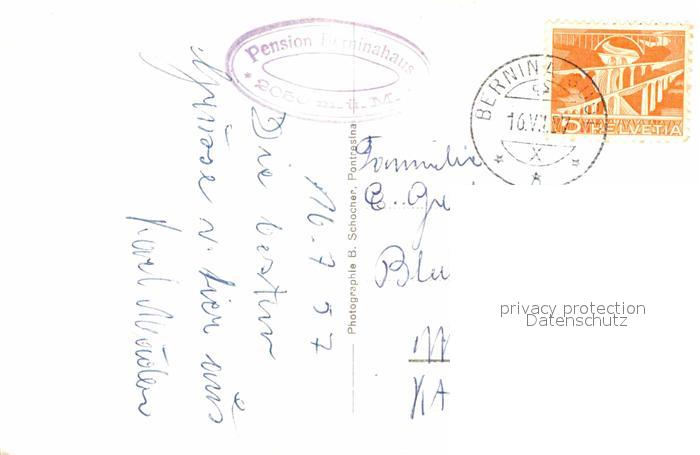 Pension Berninahaus
* 2050 m.ü.M.
BERNINA
16.VII.57
X
5 HELVETIA
16.7 57
Die besten
Grüsse v. hier aus
Karl
Photographie B. Schocher, Pontresina
Familie
E. Gr
Blu
M
KA
privacy protection
Datenschutz